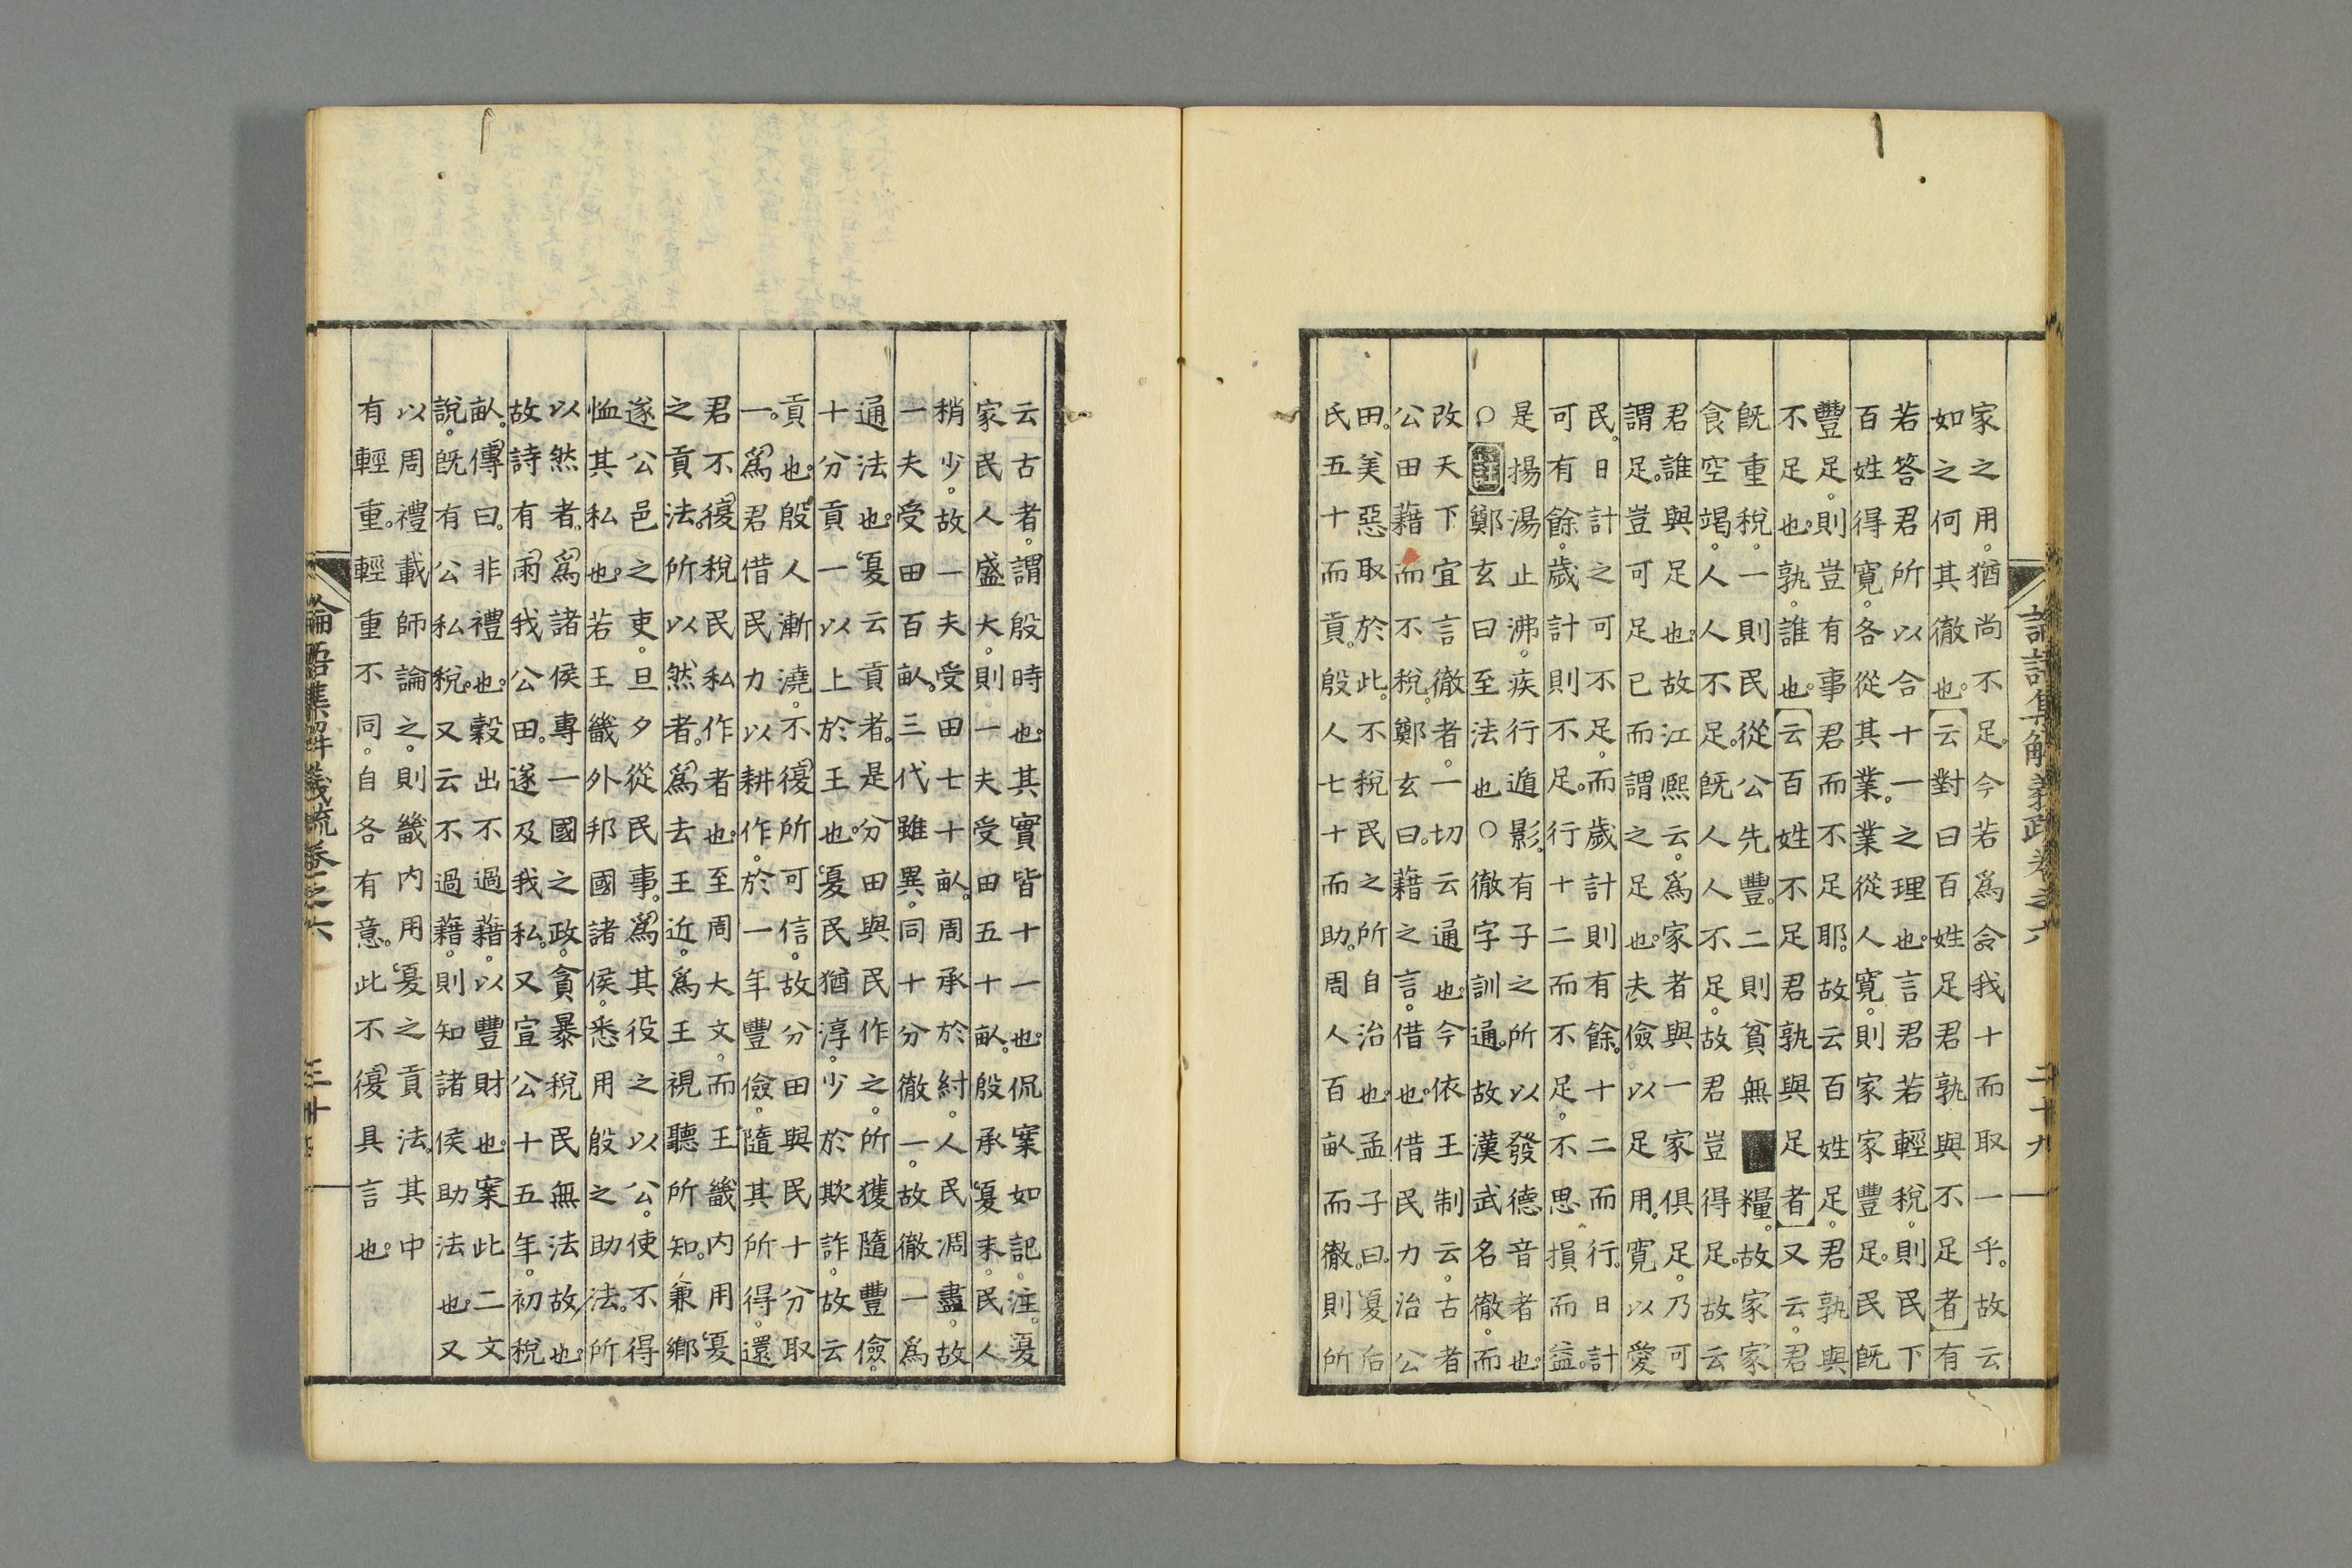 家之用。猶尚不足。今若爲令我十而取一乎。故云
如之何其徹也。云對曰百姓足君孰與不足者有
若答君所以合十一之理也。言君若輕稅。則民下
百姓得寬。各從其業。業從人寬。則家家豐足。民旣
豐足。則豈有事君而不足耶。故云百姓足。君孰與
不足也。孰。誰也。云百姓不足君孰與足者又云。君
旣重稅。一則民從公先豐。二則貧無■糧。故家家
食空竭。人人不足。旣人人不足。故君豈得足。故云
君誰與足也。故江熙云。爲家者與一家俱足。乃可
謂足。豈可足已而謂之足也。夫儉以足用。寬以愛
民。日計之可不足。而歲計則有餘。十二而行。日計
可有餘。歲計則不足。行十二而不足。不思損而益。
是揚湯止沸。疾行遁影。有子之所以發德音者也。
○鄭玄曰至法也○徹字訓通。故漢武名徹。而
改天下宜言徹者。一切云通也。今依王制云。古者
公田藉而不稅。鄭玄曰。藉之言。借也。借民力治公
田。美惡取於此。不稅民之所自治也。孟子曰。夏后
氏五十而貢。殷人七十而助。周人百畝而徹。則所
論語集解義疏卷之六 二十九
云古者。謂殷時也。其實皆十一也。侃案如記注。夏
家民人盛大。則一夫受田五十畝。殷承夏末。民人
稍少。故一夫受田七十畝。周承於紂。人民凋盡。故
一夫受田百畝。三代雖異。同十分徹一。故徹一爲
通法也。夏云貢者。是分田與民作之。所獲隨豐儉。
十分貢一以上於王也。夏民猶淳。少於欺詐。故云
貢也。殷人漸澆。不復所可信。故分田與民十分取
一。爲君借民力以耕作。於一年豐儉。隨其所得。還
君不復稅民私作者也。至周大文。而王畿內用夏
之貢法。所以然者。爲去王近。爲王視聽所知。兼鄉
遂公邑之吏。旦夕從民事。爲其役之以公。使不得
恤其私也。若王畿外邦國諸侯。悉用殷之助法。所
以然者。爲諸侯專一國之政。貪暴稅民無法故也。
故詩有雨我公田。遂及我私。又宣公十五年。初稅
畝。傳曰。非禮也。穀出不過藉。以豐財也。案此二文
說。旣有公私稅。又云不過藉。則知諸侯助法也。又
以周禮載師論之。則畿內用夏之貢法。其中
有輕重。輕重不同。自各有意。此不復具言也。
論語集解義疏卷之六